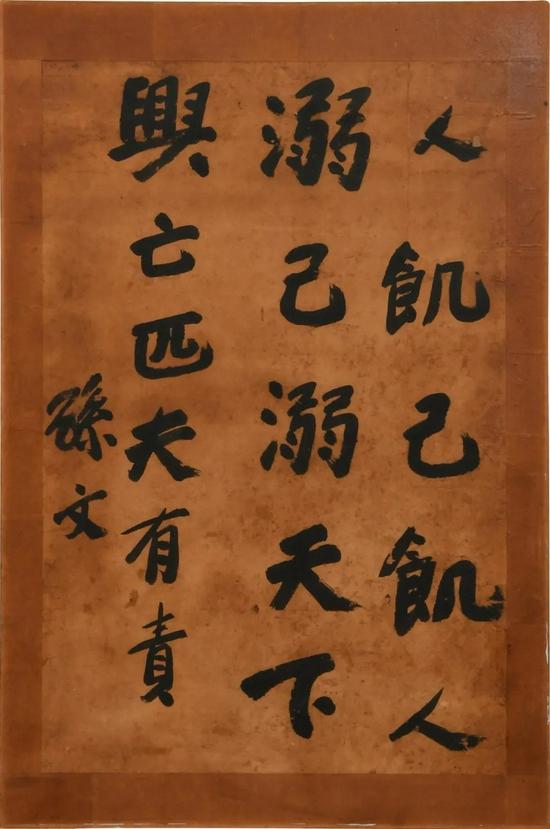 人飢己飢人
溺己溺天下
興亡匹夫有責
孫文